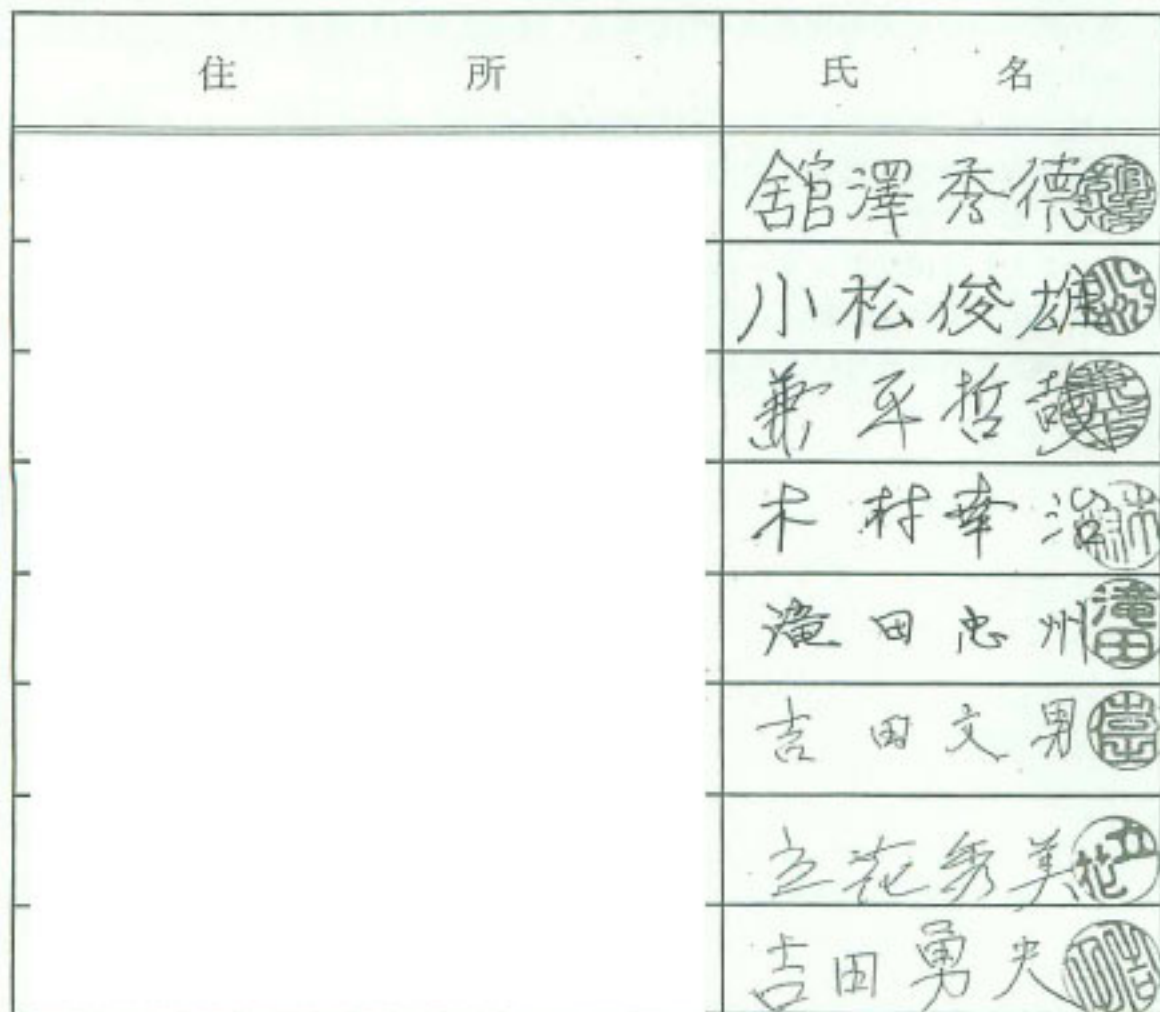 住所 氏名
舘澤秀徳
小松俊雄
兼平哲哉
木村幸治
滝田忠州
吉田文男
立花秀美
吉田勇夫